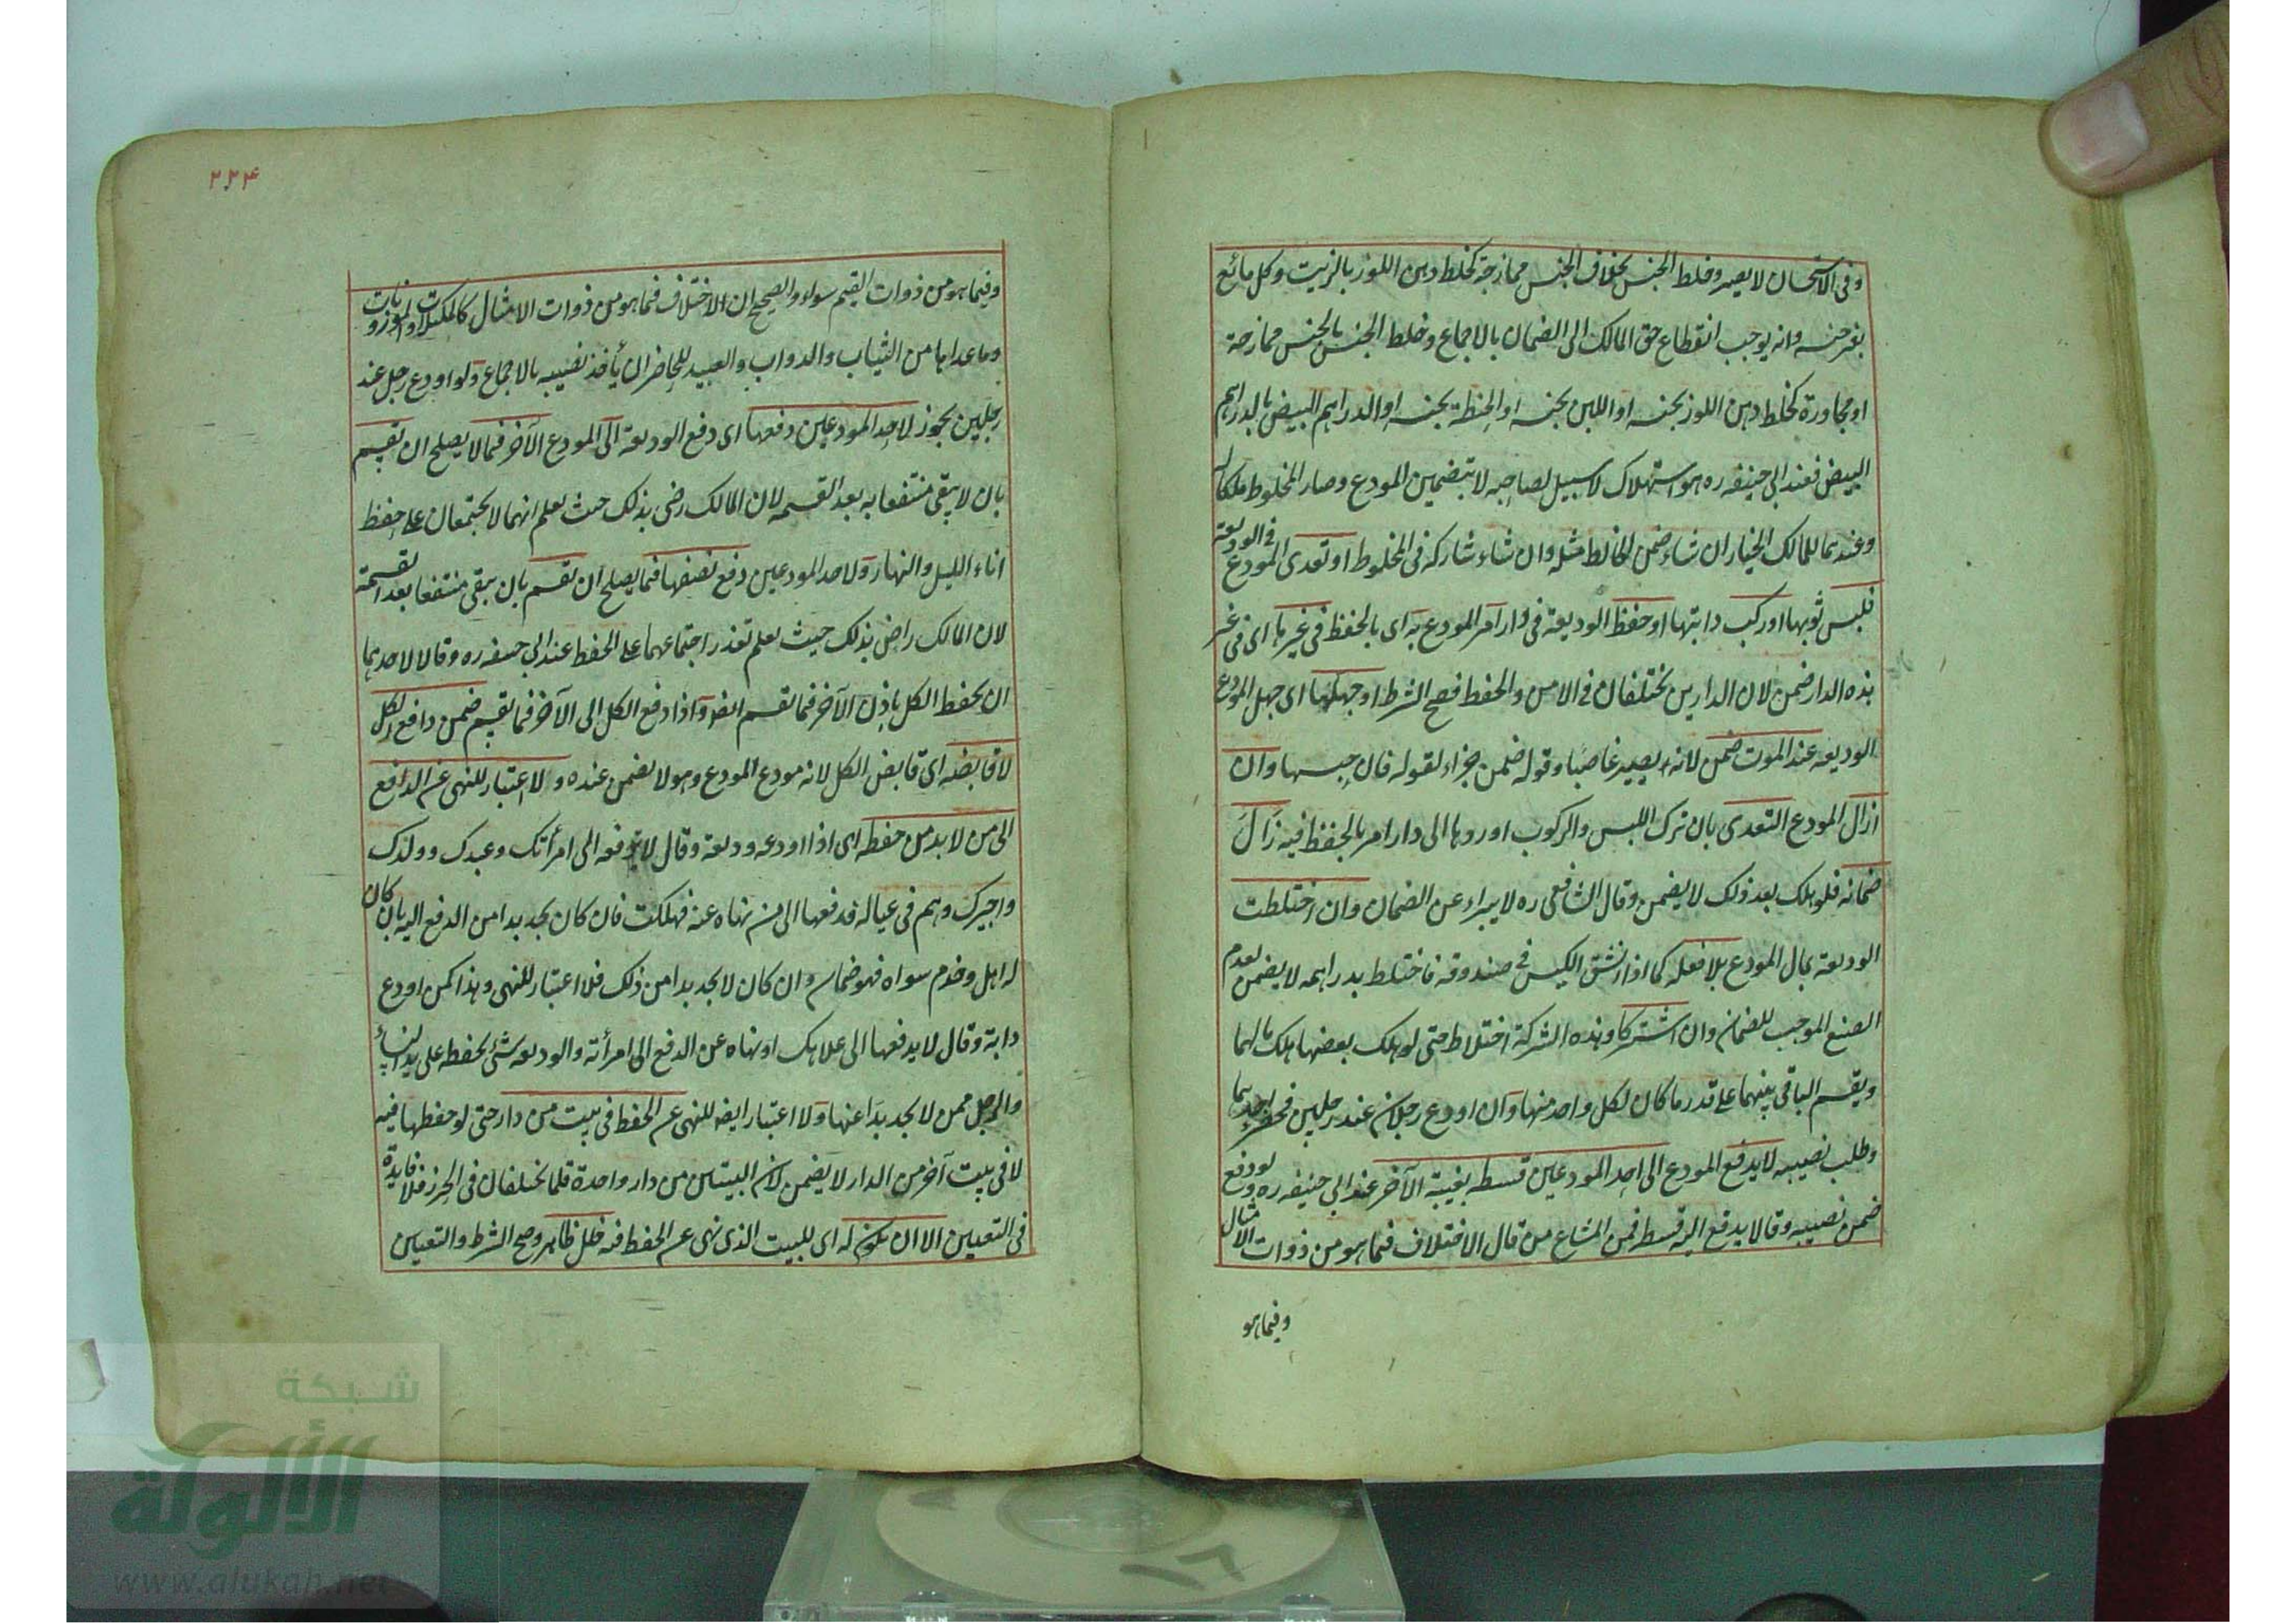 وفى الاستحسان لا يصير وخلط الجنس بخلاف الجنس ممازجة كخلط دهن اللوز بالزيت وكل مائع
بغير جنسه وانه يوجب انقطاع حق المالك الى الضمان بالاجماع وخلط الجنس بالجنس ممازجة
او مجاورة كخلط دهن اللوز بجنسه او اللبن بجنسه او الحنطة بجنسه او الدراهم البيض بالدراهم
البيض فعند ابى حنيفه ره هو استهلاك لا سبيل لصاحبه لا بتضمين المودع وصار المخلوط ملكا له
وعندهما للمالك الخيار ان شاء ضمن الخالط مثله وان شاء شاركه فى المخلوط او تعدى المودع فى الوديعة
فلبس ثوبها او ركب دابتها او حفظ الوديعة فى دار امر المودع به اى بالحفظ فى غيرها اى فى غير
هذه الدار ضمن لان الدارين تختلفان فى الامن والحفظ فصح الشرط او جهلها اى جهل المودع
الوديعه عند الموت ضمن لانه يصير غاصبا وقوله ضمن جزاء لقوله فان حبسها وان
ازال المودع التعدى بان ترك اللبس والركوب او ردها الى دار امر بالحفظ فيه زَالَ
ضمانه فلو هلك بعد ذلك لا يضمن وقال الشافعى ره لا يبراء عن الضمان وان اختلطت
الوديعة بمال المودع بلا فعله كما اذا انشق الكيس فى صندوقه فاختلط بدراهمه لا يضمن لعدم
الصنع الموجب للضمان وان اشتركا وهذه الشركة اختلاط حتى لو هلك بعضها هلك بمالهما
ويقسم الباقى بينهما على قدر ما كان لكل واحد منهما وان اودع رجلان عند رجلين فحضر احدهما
وطلب نصيبه لا يدفع المودع الى احد المودعين قسطه بغيبة الآخر عند ابى حنيفه ره ولو دفع
ضمن نصيبه وقالا يدفع اليه قسطه فمن المشاع من قال الاختلاف فيما هو من ذوات الامثال
وفيما هو
٢٢٤
وفيما هو من ذوات القيم سواء والصحيح ان الاختلاف فيما هو من ذوات الامثال كالمكيلات والموزونات
وما عداها من الثياب والدواب والعبيد للحاضر ان يأخذ نصيبه بالاجماع ولو اودع رجل عند
رجلين يجوز لاحد المودعين دفعها اى دفع الوديعة الى المودع الآخر فيما لا يصلح ان تقسم
بان لا يبقى منتفعا به بعد القسمه لان المالك رضى بذلك حيث يعلم انهما لا يجتمعان على حفظ
اناء الليل والنهار ولاحد المودعين دفع نصفها فيما يصلح ان تقسم بان يبقى منتفعا بعد القسمة
لان المالك راض بذلك حيث يعلم تعذر اجتماعهما على الحفظ عند ابى حنيفه ره وقالا لاحدهما
ان يحفظ الكل باذن الآخر فيما تقسم ايضو واذا دفع الكل الى الآخر فيما تقسم ضمن دافع الكل
لا قابضه اى قابض الكل لانه مودع المودع وهو لا يضمن عنده ولا اعتبار للنهى عن الدافع
الى من لا بد من حفظه اى اذا اودعه وديعة وقال لا تدفعه الى امرأتك وعبدك وولدك
واجيرك وهم فى عياله فدفعها الى من نهاه عنه فهلكت فان كان يجد بدا من الدفع اليه بان كان
له اهل وخدم سواه فهو ضمان وان كان لا يجد بدا من ذلك فلا اعتبار للنهى وهذا كمن اودع
دابة وقال لا يدفعها الى غلامك او نهاه عن الدفع الى امرأته والوديعه شئ يحفظه على يد النساء
والرجل ممن لا يجد بدا عنها ولا اعتبار ايضه للنهى عن الحفظ فى بيت من دار حتى لو حفظها فيه
لا فى بيت آخر من الدار لا يضمن لان البيتين من دار واحدة قلما تختلفان فى الحرز فلا فايدة
فى التعيين الا ان يكون له اى للبيت الذى نهى عن الحفظ فيه خلل ظاهر وصح الشرط والتعيين
شبكة
الألوكة
www.alukah.net